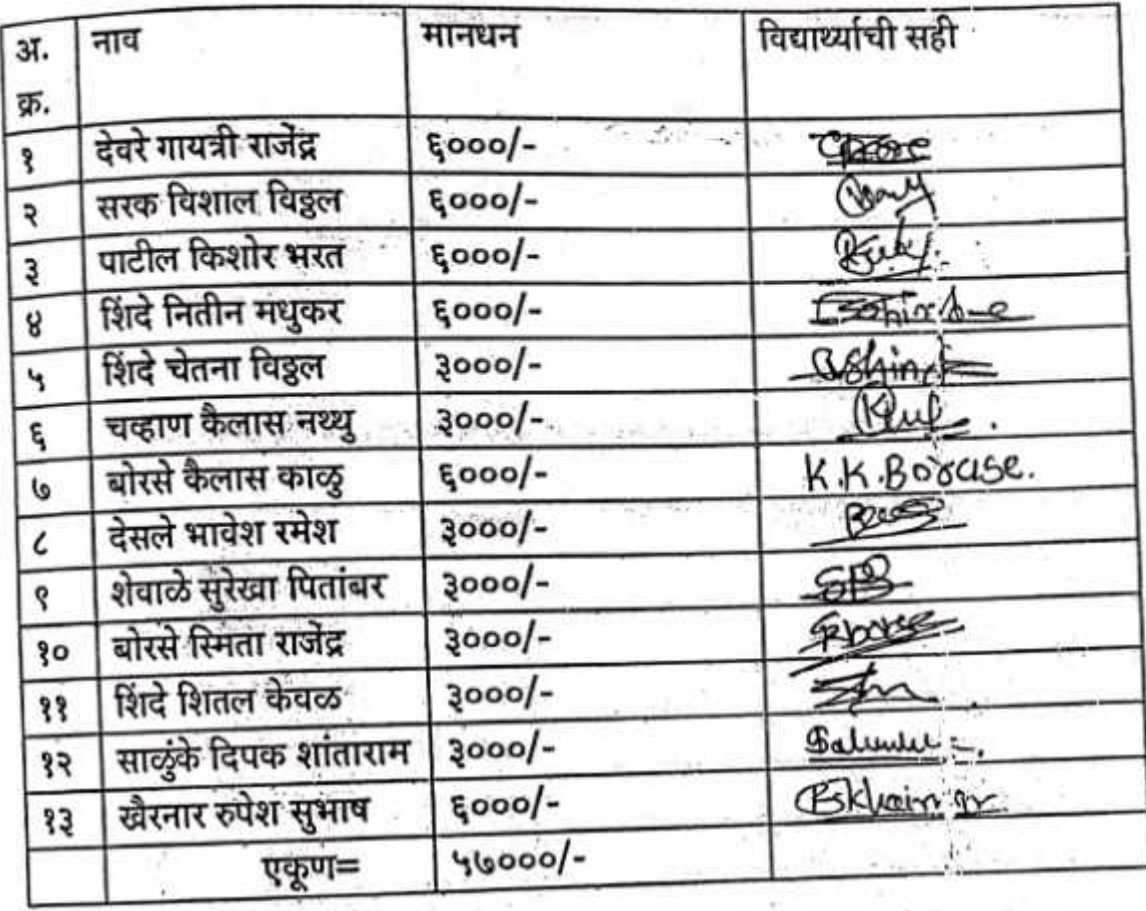 अ. क्र. नाव मानधन विद्यार्थ्याची सही
१ देवरे गायत्री राजेंद्र ६०००/-
२ सरक विशाल विठ्ठल ६०००/-
३ पाटील किशोर भरत ६०००/-
४ शिंदे नितीन मधुकर ६०००/-
५ शिंदे चेतना विठ्ठल ३०००/-
६ चव्हाण कैलास नथ्थु ३०००/-
७ बोरसे कैलास काळु ६०००/- K.K.Borase.
८ देसले भावेश रमेश ३०००/-
९ शेवाळे सुरेखा पितांबर ३०००/-
१० बोरसे स्मिता राजेंद्र ३०००/-
११ शिंदे शितल केवळ ३०००/-
१२ साळुंके दिपक शांताराम ३०००/-
१३ खैरनार रुपेश सुभाष ६०००/-
एकूण= ५७०००/-